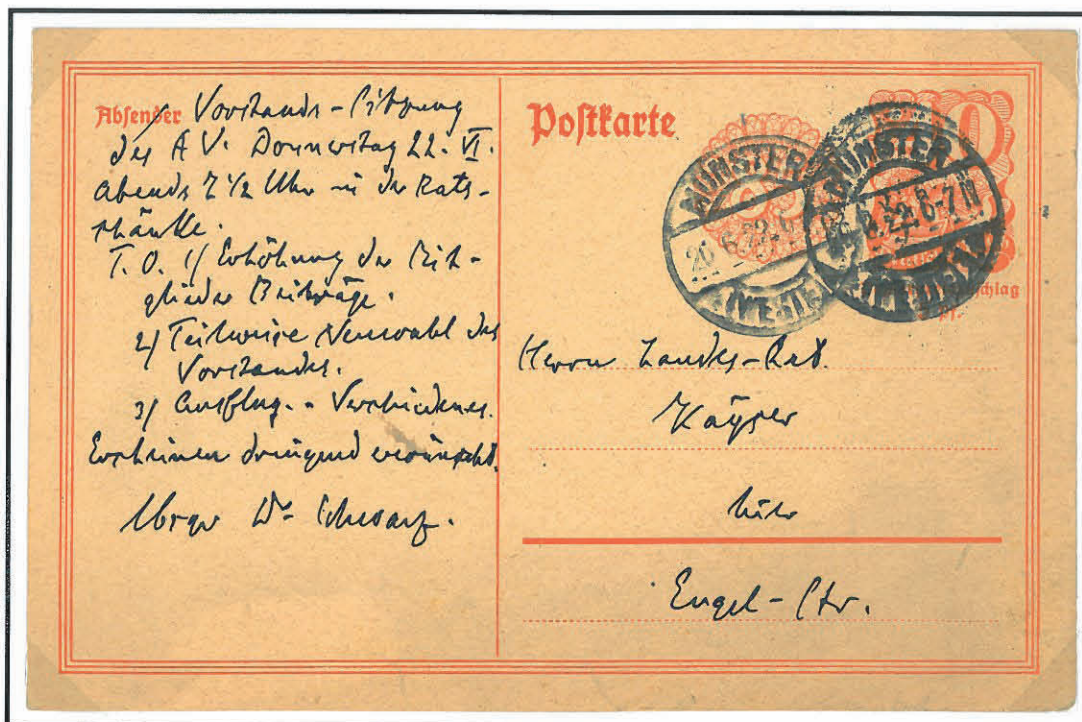 Absender Vorstands-Sitzung
des A V. Donnerstag 22. VI.
abends 7 1/2 Uhr in der Rats-
schänke.
T. O. 1/ Erhöhung der Mit-
glieder Beiträge.
2/ Teilweise Neuwahl des
Vorstandes.
3/ Ausflug. - Verschiedenes.
Erscheinen dringend erwünscht.
Dr Schwarz.
Postkarte
MÜNSTER
(WESTF.)
MÜNSTER
6-7 N
(WESTF.)
Herrn Landes-Rat.
Kayser
hier
Engel-Str.